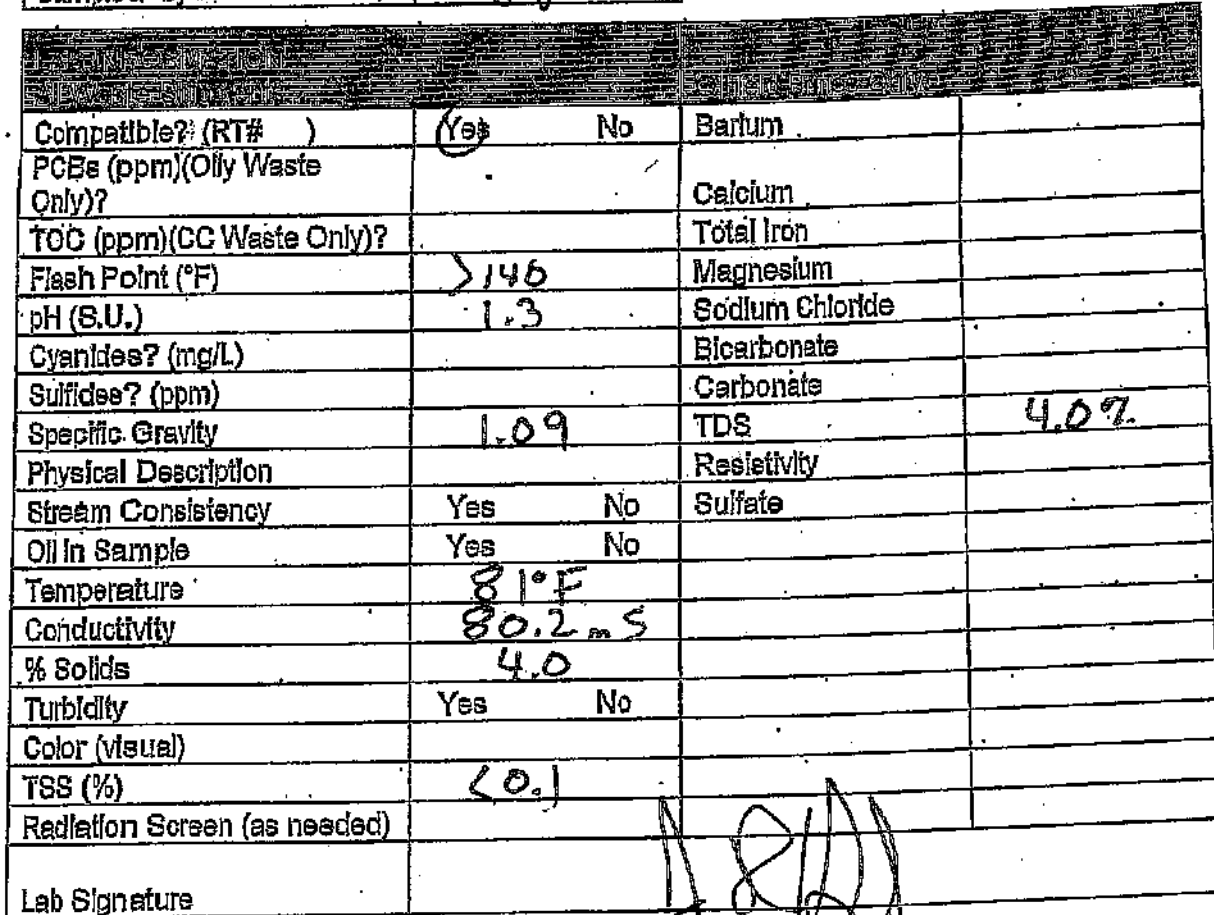 Compatible? (RT# ) Yes No Barium
PCBs (ppm)(Oily Waste
Only)? Calcium
TOC (ppm)(CC Waste Only)? Total Iron
Flash Point (°F) >140 Magnesium
pH (S.U.) 1.3 Sodium Chloride
Cyanides? (mg/L) Bicarbonate
Sulfides? (ppm) Carbonate
Specific Gravity 1.09 TDS 4.0%
Physical Description Resistivity
Stream Consistency Yes No Sulfate
Oil in Sample Yes No
Temperature 81°F
Conductivity 80.2 mS
% Solids 4.0
Turbidity Yes No
Color (visual)
TSS (%) <0.1
Radiation Screen (as needed)
Lab Signature